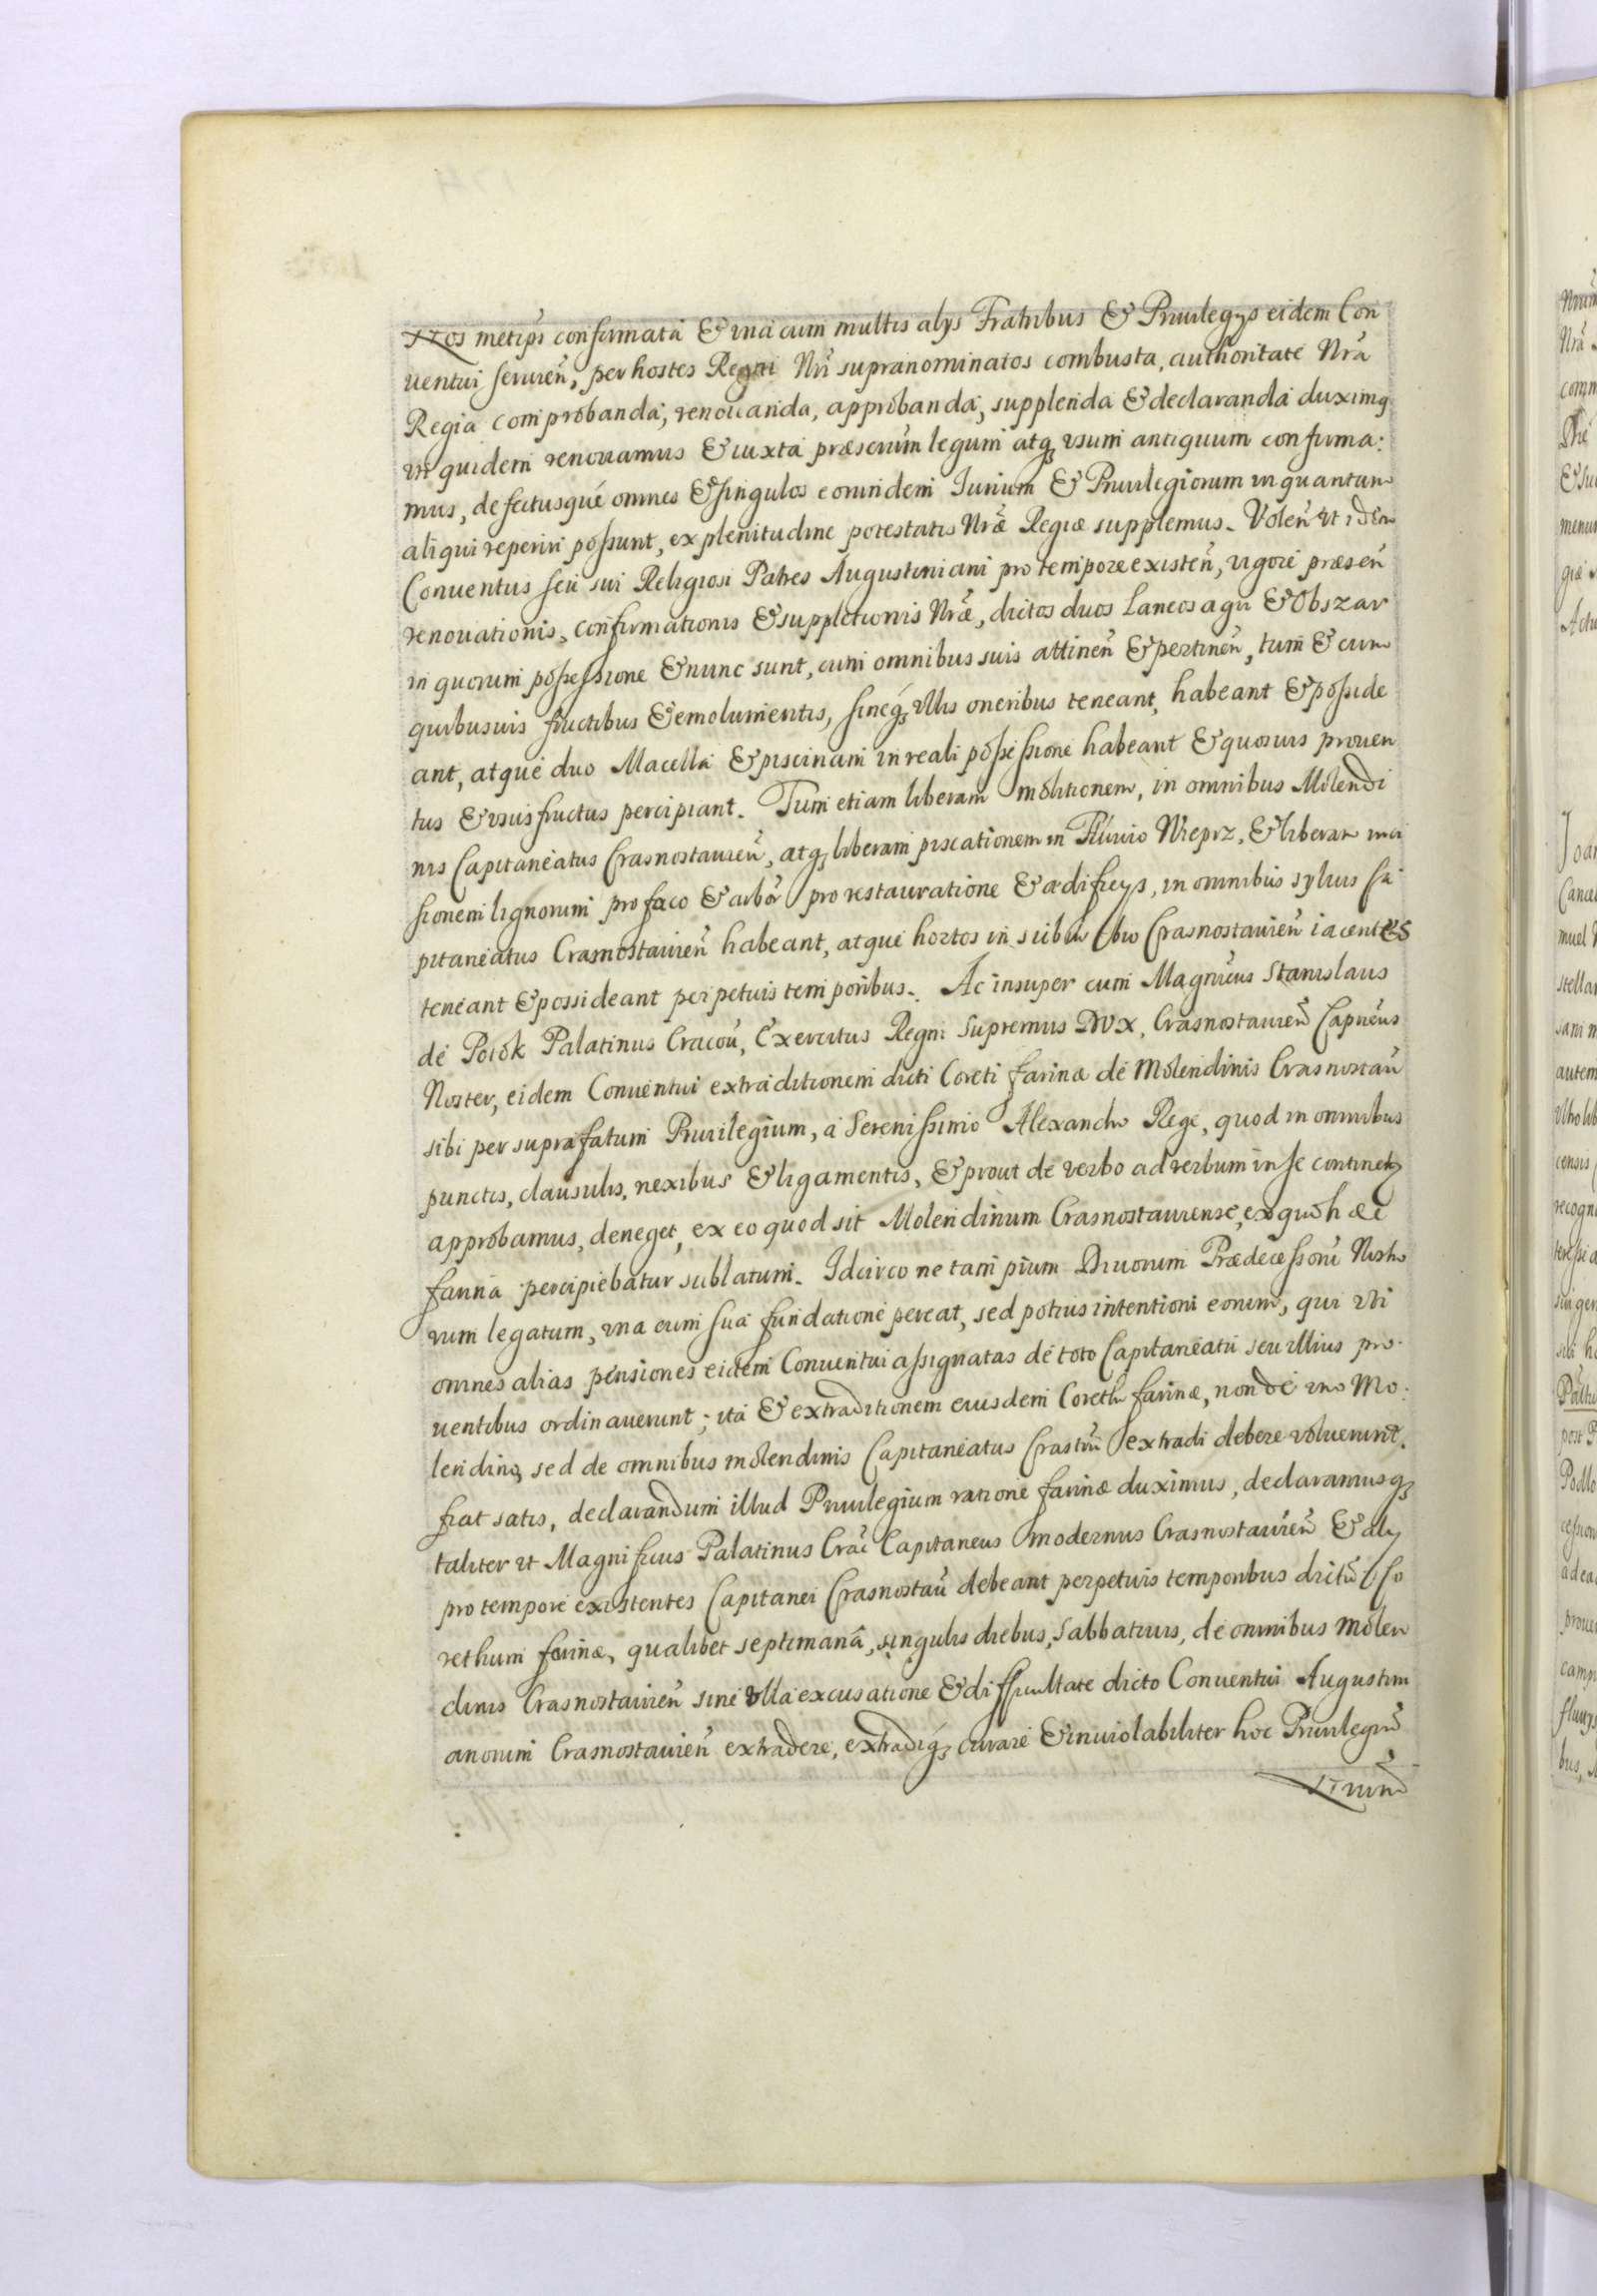 Nos metipsi confirmata & una cum multis alys Fratribus & Priuilegys eidem Con
uentui seruien̄, per hostes Regni Nri supranominatos combusta, authoritate Nrã
Regia comprobanda, renouanda, approbanda, supplenda & declaranda duximq
vt quidem renouamus & iuxta præscrium legum atq, vsum antiquum confirma:
mus, defectusque omnes & singulos eorundem Iurium & Priuilegiorum in quantum
aliqui reperiri possunt, ex plenitudine potestatis Nræ Regiæ supplemus. Volen̄ vt idem
Conuentus seu sui Religiosi Patres Augustiniani pro tempore existen̄, vigore præsen̄
renouationis, confirmationis & suppletionis Nræ, dictos duos Laneos agri & Obszar
in quorum possessione & nunc sunt, cum omnibus suis attinen̄ & pertinen̄, tum & cum
quibusuis fructibus & emolumentis, sineq, vllis oneribus teneant, habeant & posside
ant, atque duo Macella & piscinam in reali possessione habeant & quosuis prouen
tus & vsusfructus percipiant. Tum etiam liberam molitionem, in omnibus Molendi
nis Capitaneatus Crasnostauien̄, atq, liberam piscationem in Fluuio Wieprz, & liberam inci
sionem lignorum pro foco & arbor̄ pro restauratione & ædificys, in omnibus syluis Ca
pitaneatus Crasnostauien̄ habeant, atque hortos in suburbio Crasnostauien̄ iacentes
teneant & possideant perpetuis temporibus. Ac insuper cum Magnicus Stanislaus
de Potok Palatinus Cracou̅, Exercitus Regni Supremus Dux, Crasnostauien̄ Capneus
Noster, eidem Conuentui extraditionem dicti Coreti farinæ de Molendinis Crasnostau̅
sibi per suprafatum Priuilegium, a Serenissimo Alexandro Rege, quod in omnibus
punctis, clausulis, nexibus & ligamentis, & prout de verbo ad verbum in se continetq
approbamus, deneget, ex eo quod sit Molendinum Crasnostauiense, ex quo hæc
farina percipiebatur sublatum. Idcirco ne tam pium Diuorum Prædecessoru̅ Nostro
rum legatum, vna cum sua fundatione pereat, sed potius intentioni eorum, qui vti
omnes alias pensiones eidem Conuentui assignatas de toto Capitaneatu seu illius pro:
uentibus ordinauerunt; ita & extraditionem eiusdem Corethi farinæ, non de vno Mo:
lendino, sed de omnibus molendinis Capitaneatus Crastn̄ extradi debere voluerunt.
fiat satis, declarandum illud Priuilegium ratione farinæ duximus, declaramusq,
taliter vt Magnificus Palatinus Crac̄ Capitaneus modernus Crasnostauien̄ & aly
pro tempore existentes Capitanei Crasnostau̅ debeant perpetuis temporibus dictu̅ Co
rethum farinæ, qualibet septimana, singulis diebus, Sabbatiuis, de omnibus molen
dinis Crasnostauien̄ sine vlla excusatione & difficultate dicto Conuentui Augustini
anorum Crasnostauien̄ extradere, extradiq, curare & inuiolabiliter hoc Priuilegiu̅
Nrum